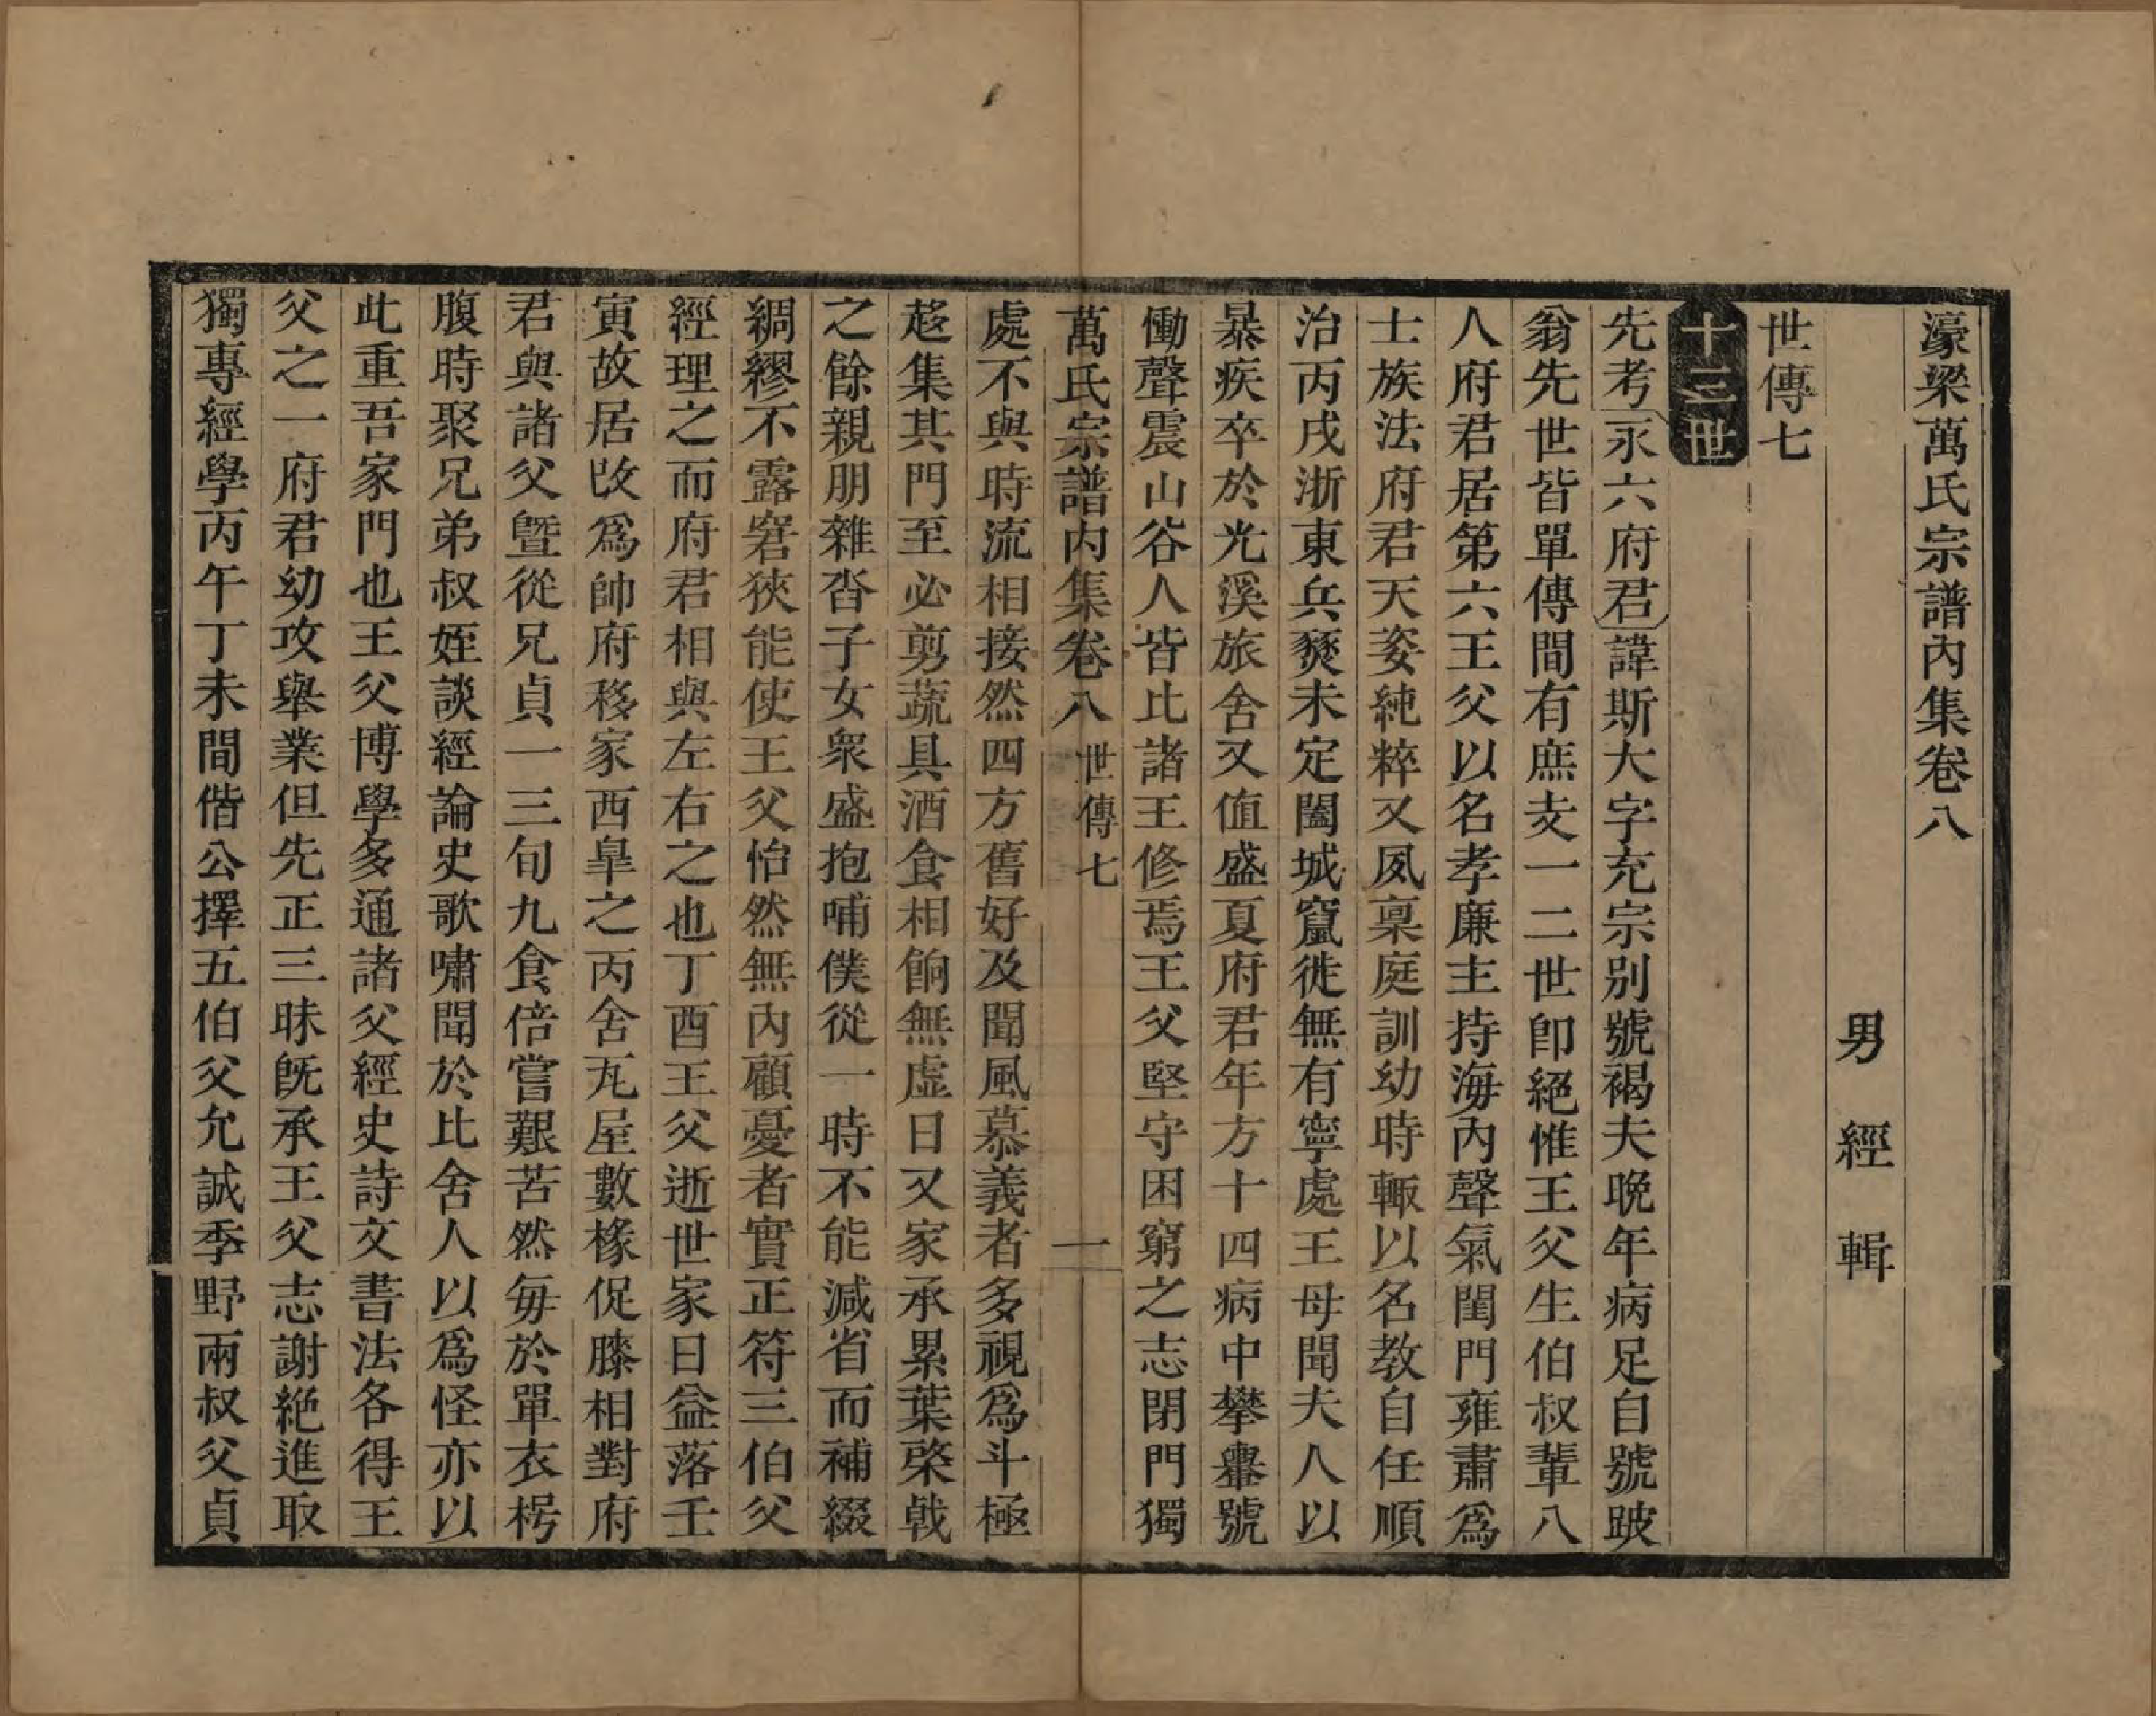 濠梁萬氏宗譜內集卷八
男經輯
世傳七
十三世
先考永六府君諱斯大字充宗別號褐夫晚年病足自號跛
翁先世皆單傳間有庶支一二世卽絕惟王父生伯叔輩八
人府君居第六王父以名孝廉主持海內聲氣閨門雍肅爲
士族法府君天姿純粹又夙稟庭訓幼時輒以名教自任順
治丙戌浙東兵燹未定闔城竄徙無有寧處王母聞夫人以
暴疾卒於光溪旅舍又值盛夏府君年方十四病中攀轝號
慟聲震山谷人皆比諸王修焉王父堅守困窮之志閉門獨
萬氏宗譜內集卷八 世傳七 一
處不與時流相接然四方舊好及聞風慕義者多視爲斗極
趍集其門至必剪蔬具酒食相餉無虛日又家承累葉棨戟
之餘親朋雜沓子女衆盛抱哺僕從一時不能減省而補綴
綢繆不露窘狹能使王父怡然無內顧憂者實正符三伯父
經理之而府君相與左右之也丁酉王父逝世家日益落壬
寅故居改爲帥府移家西臯之丙舍瓦屋數椽促膝相對府
君與諸父曁從兄貞一三旬九食倍嘗艱苦然毎於單衣枵
腹時聚兄弟叔姪談經論史歌嘯聞於比舍人以爲怪亦以
此重吾家門也王父博學多通諸父經史詩文書法各得王
父之一府君幼攻舉業但先正三昧旣承王父志謝絕進取
獨專經學丙午丁未間偕公擇五伯父允誠季野兩叔父貞